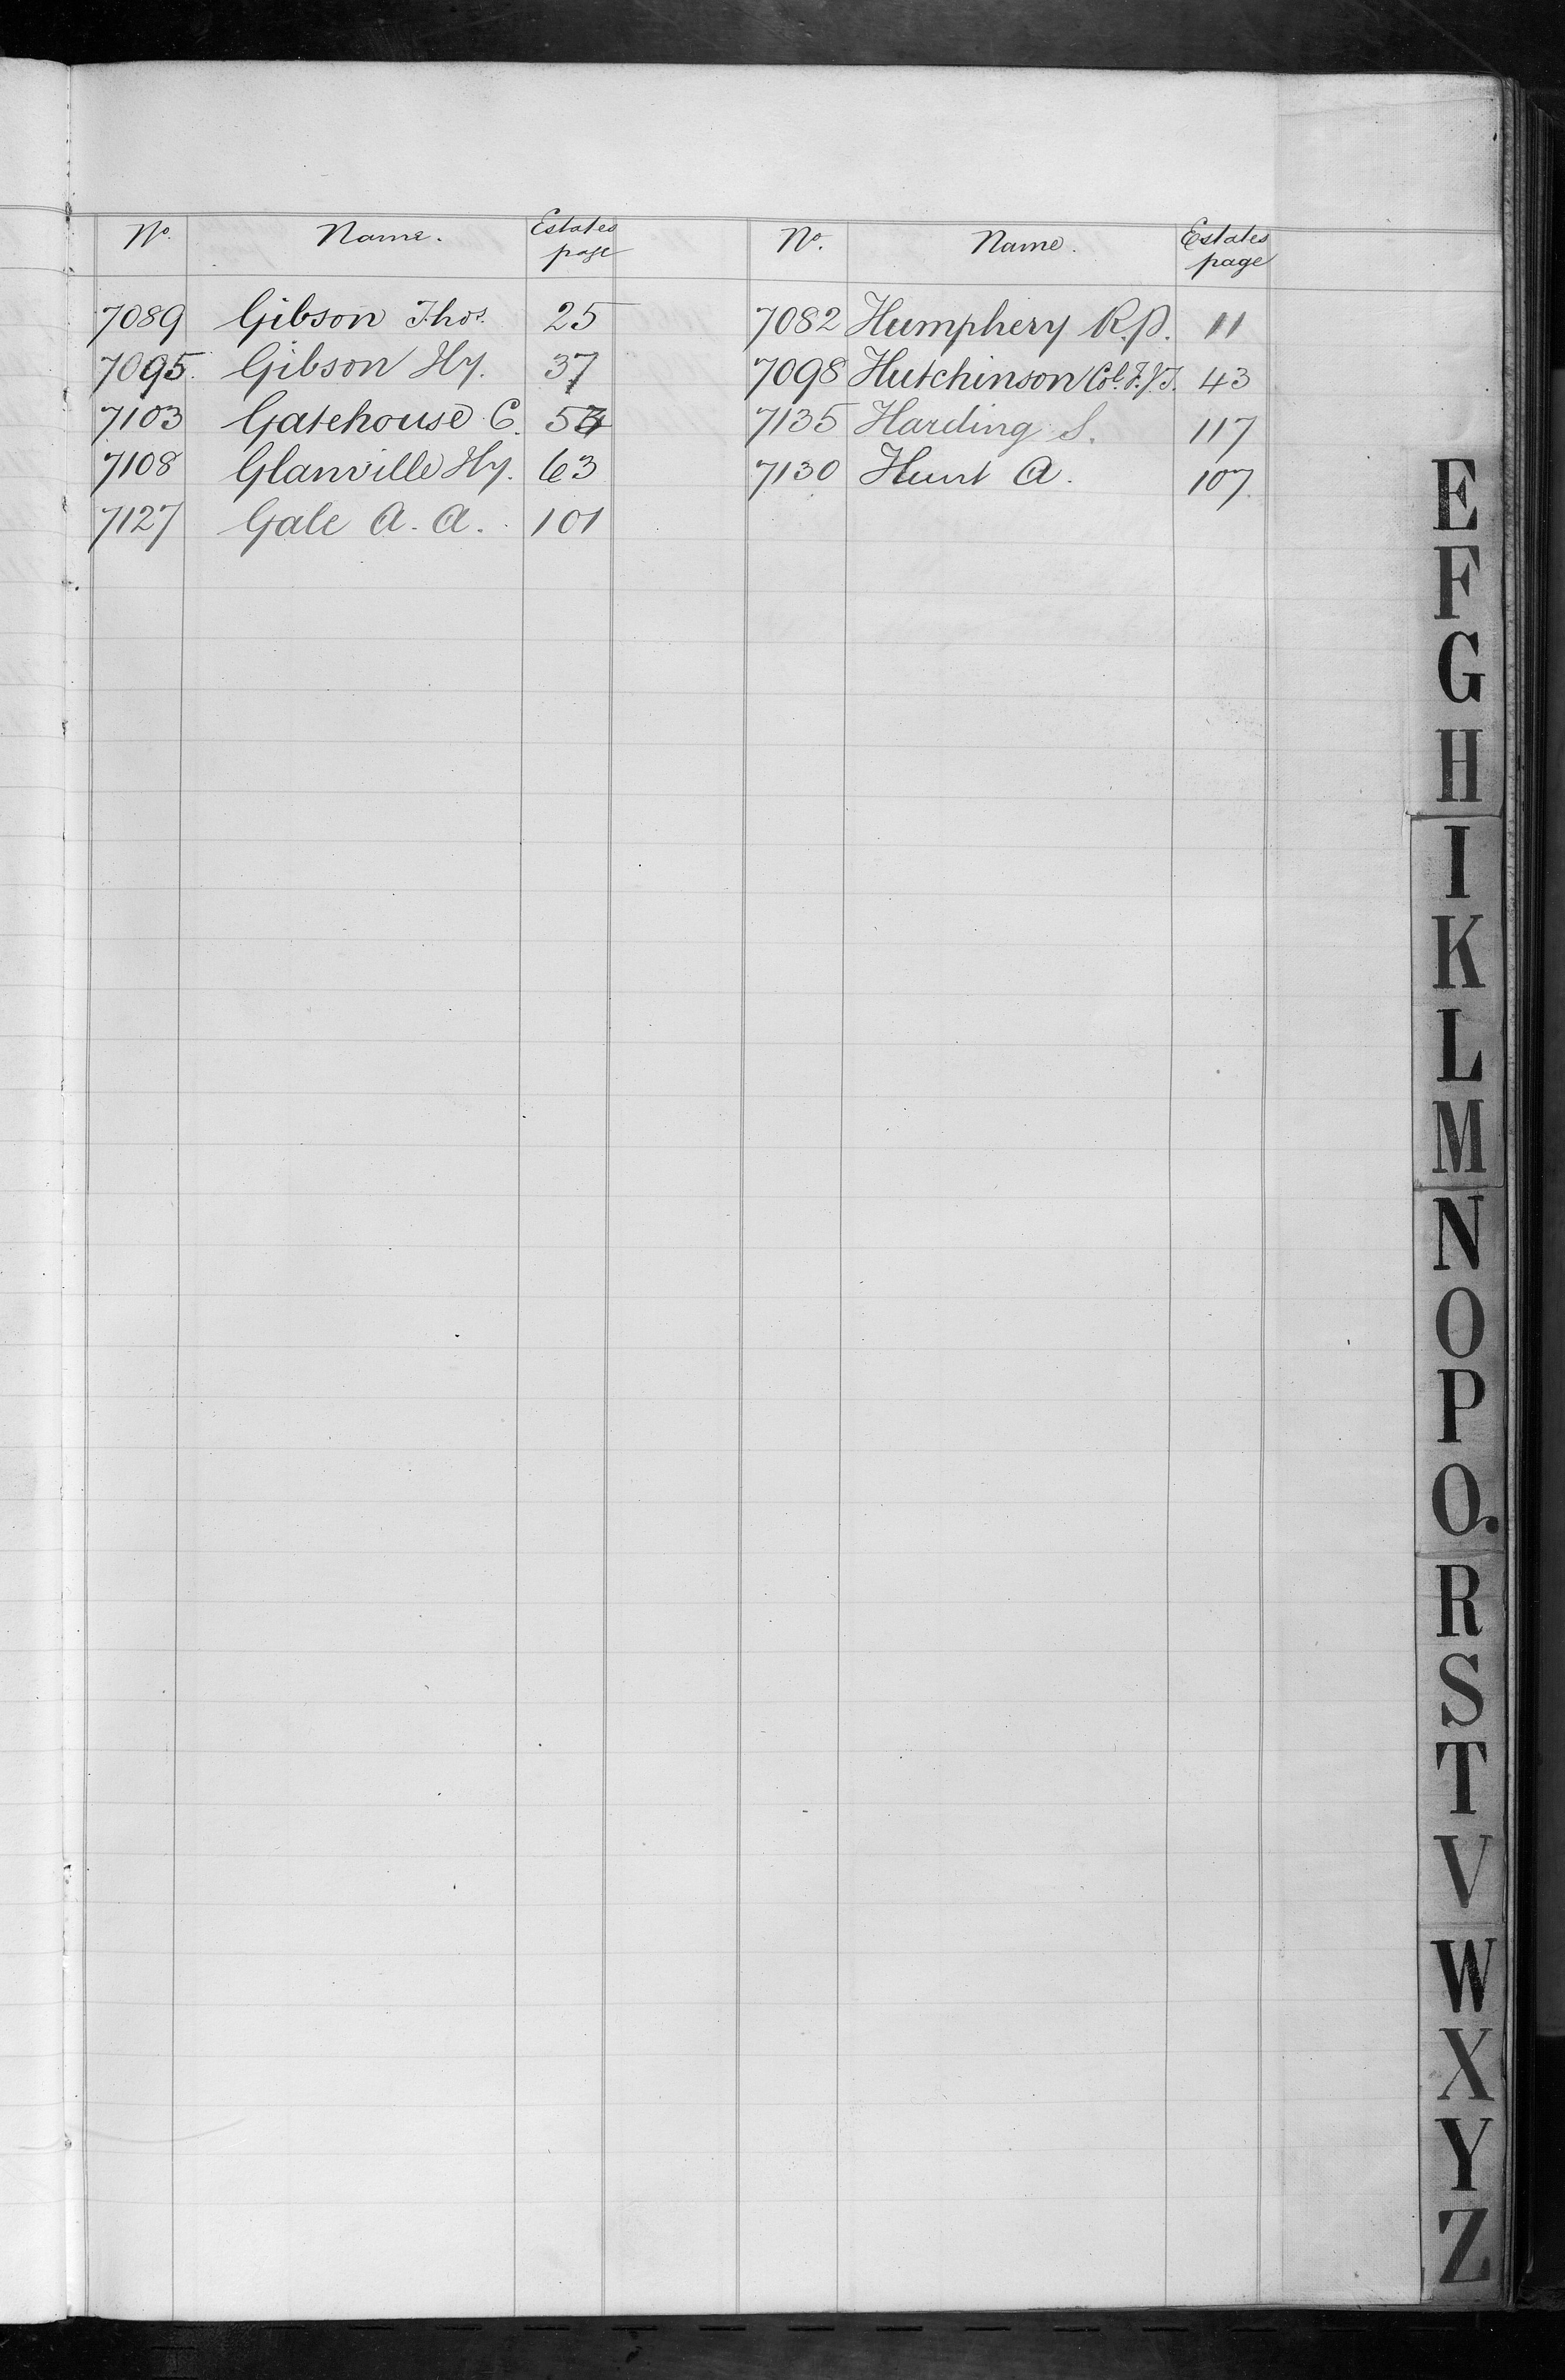 No. Name. Estates page
7089 Gibson Thos. 25
7095. Gibson Hy. 37
7103 Gatehouse C. 53
7108 Glanville Hy. 63
7127 Gale A. A. 101
No. Name. Estates page
7082 Humphery R.P. 11
7098 Hutchinson Col. F.J.T. 43
7135 Harding S. 117
7130 Hunt A. 107
E
F
G
H
I
K
L
M
N
O
P
Q.
R
S
T
V
W
X
Y
Z